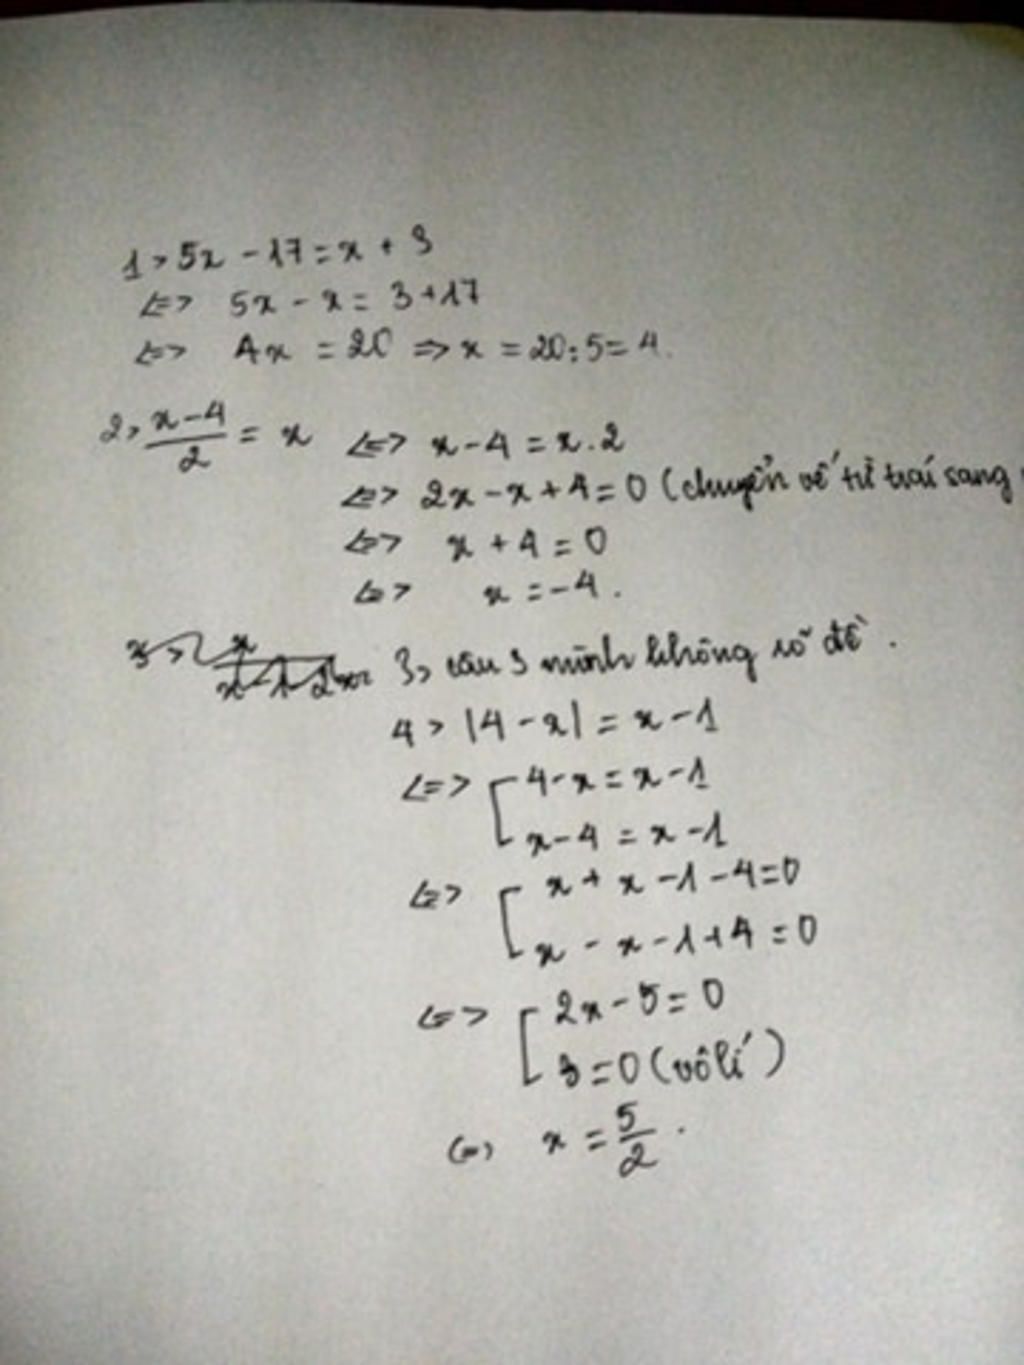 1> 5x - 17 = x + 3
<=> 5x - x = 3 + 17
<=> 4x = 20 => x = 20:5 = 4.
2> \frac{x-4}{2} = x <=> x - 4 = x.2
<=> 2x - x + 4 = 0 (chuyển vế từ trái sang
<=> x + 4 = 0
<=> x = -4.
3> câu 3 mình không rõ đề.
4> |4 - x| = x - 1
<=> [ 4 - x = x - 1
x - 4 = x - 1
<=> [ x + x - 1 - 4 = 0
x - x - 1 + 4 = 0
<=> [ 2x - 5 = 0
3 = 0 (vô lí)
(=) x = \frac{5}{2}.